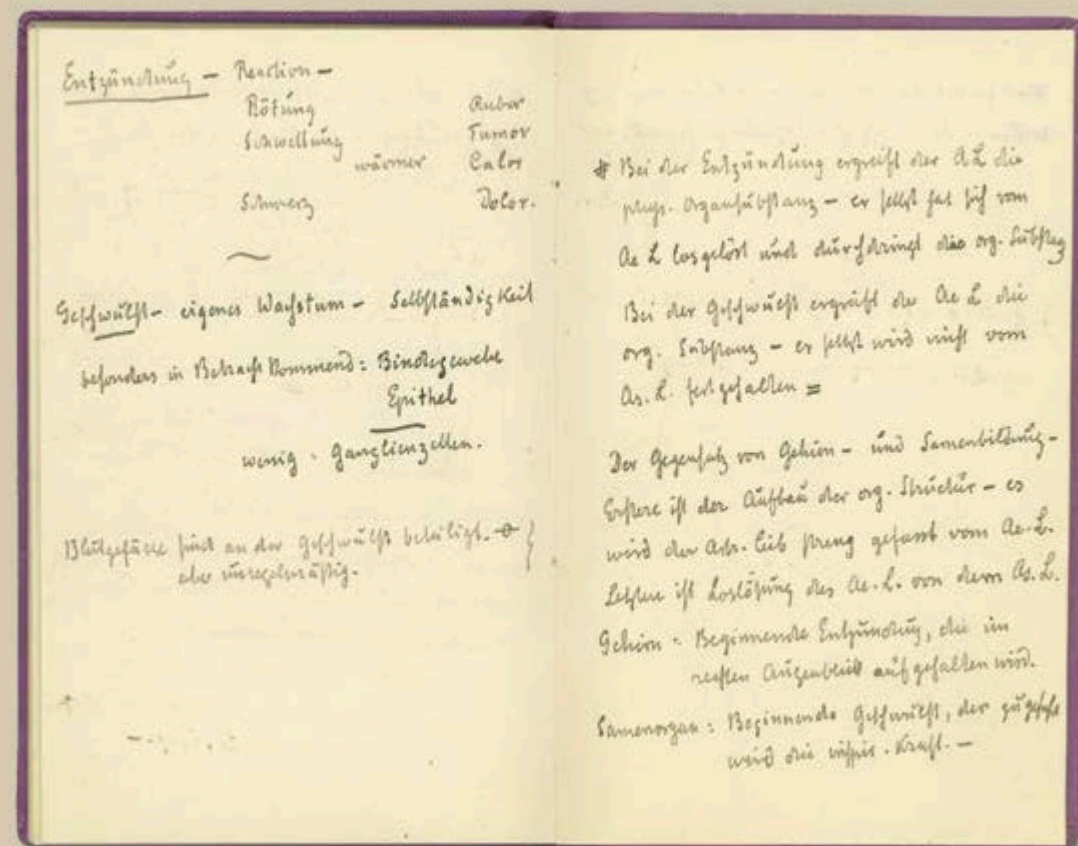 Entzündung – Reaction –
Rötung Rubor
Schwellung Tumor
wärmer Calor
Schmerz Dolor.
Geschwulst – eigenes Wachstum – Selbständigkeit
besonders in Betracht kommend: Bindegewebe
Epithel
wenig · Ganglienzellen.
Blutgefässe sind an der Geschwulst beteiligt.
aber unregelmässig.
# Bei der Entzündung ergreift der A L die
phys. Organsubstanz – er selbst hat sich vom
Ae L losgelöst und durchdringt die org. Substanz
Bei der Geschwulst ergreift der Ae L die
org. Substanz – er selbst wird nicht vom
As. L. festgehalten =
Der Gegensatz von Gehirn – und Samenbildung –
Erstere ist der Aufbau der org. Structur – es
wird der Astr. leib streng gefasst vom Ae. L.
Letztere ist Loslösung des Ae. L. von dem As. L.
Gehirn = Beginnende Entzündung, die im
rechten Augenblick aufgehalten wird.
Samenorgan: Beginnende Geschwulst, der
wird die Kraft. –